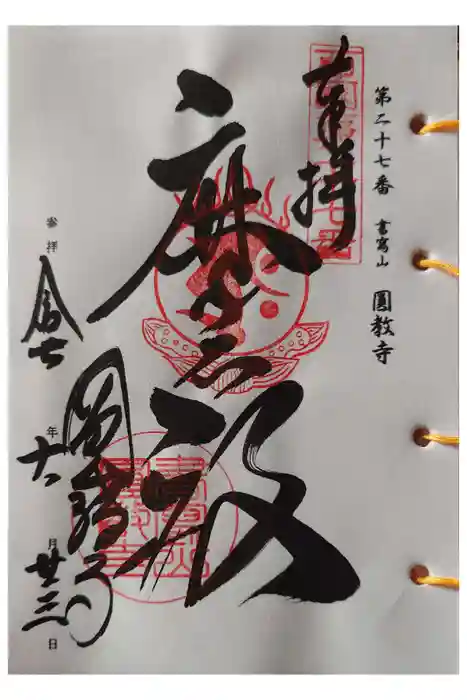 第二十七番 書寫山 圓教寺
奉拝
摩尼殿
圓教寺
参拝 令和七年 月廿三日